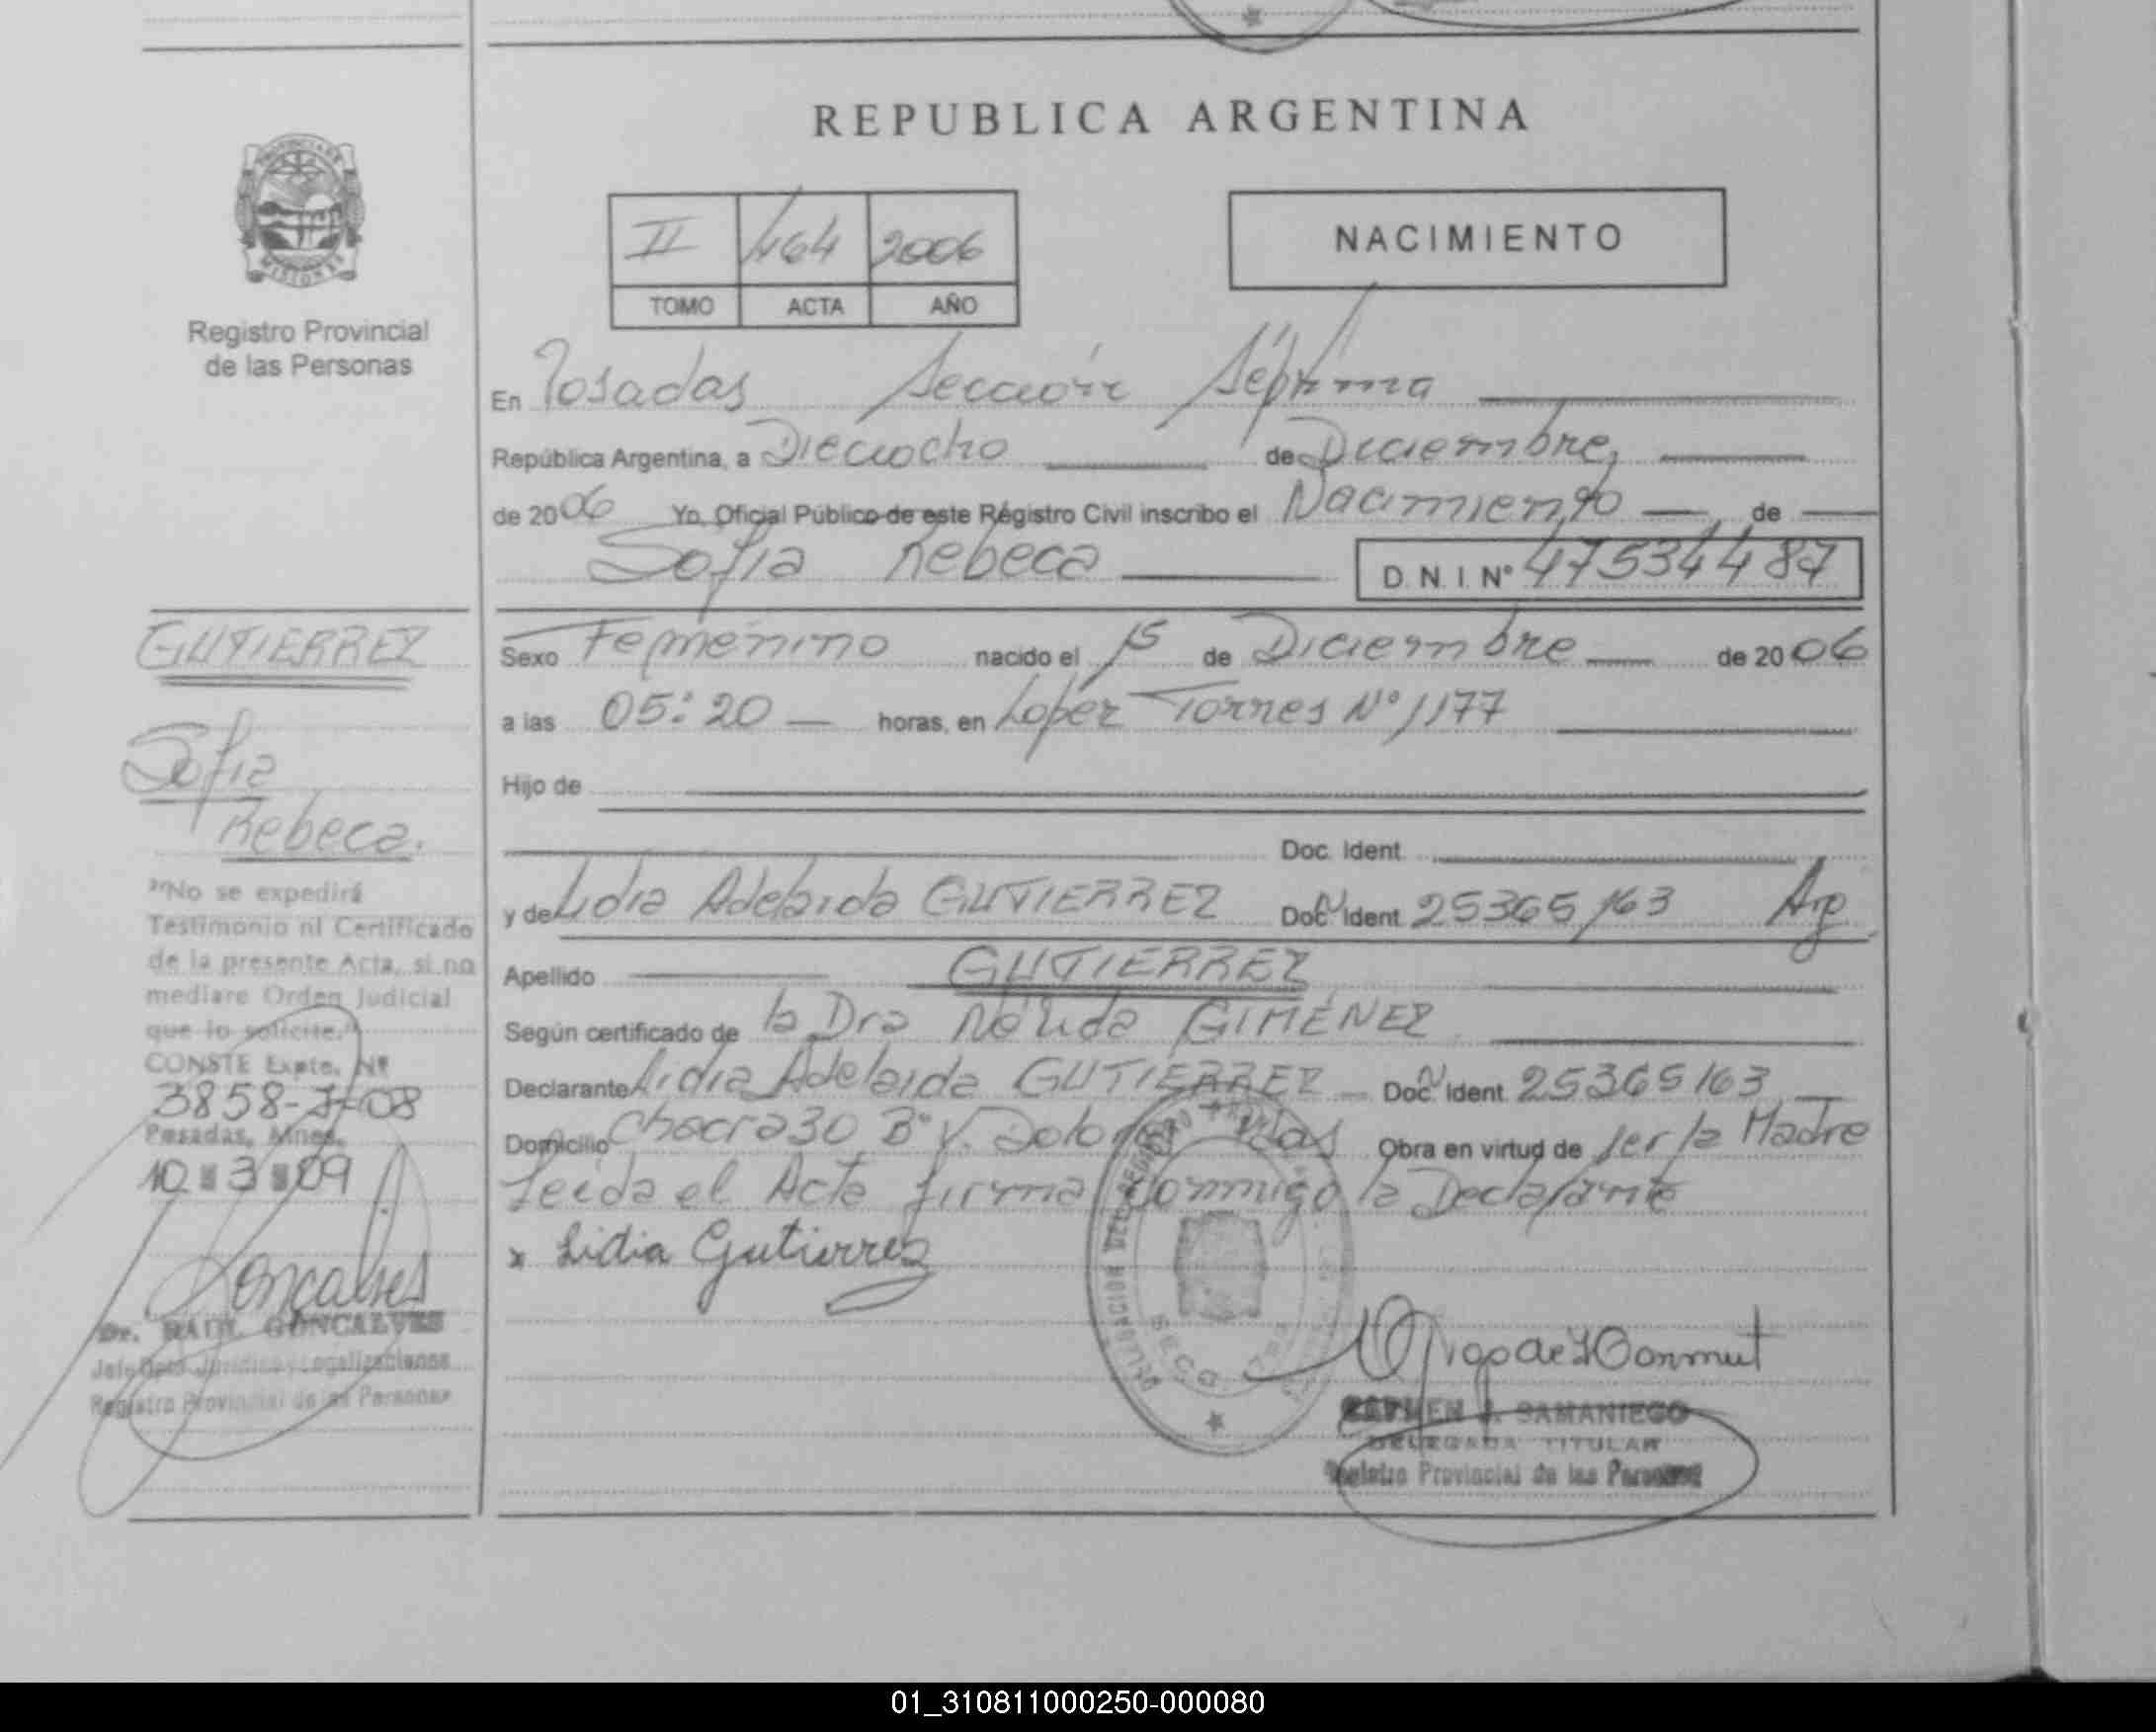 REPUBLICA ARGENTINA
PROVINCIA DE
MISIONES
Registro Provincial
de las Personas
II 464 2006
TOMO ACTA AÑO
NACIMIENTO
En Posadas Sección Séptima
República Argentina, a Dieciocho de Diciembre,
de 2006 Yo, Oficial Público de este Régistro Civil inscribo el Nacimiento de
Sofia Rebeca D.N.I. Nº 47534487
Sexo Femenino nacido el 15 de Diciembre de 2006
a las 05:20 horas, en Lopez Torres Nº 1177
Hijo de
Doc. Ident.
y de Lidia Adelaida GUTIERREZ Doc. Ident. 25365163 Arg
Apellido GUTIERREZ
Según certificado de la Dra Nélida GIMÉNEZ
Declarante Lidia Adelaida GUTIERREZ Doc. Ident. 25365163
Domicilio Chacra 30 Bº V. Dolores Pdas Obra en virtud de ser la Madre
Leida el Acta firma conmigo la Declarante
x Lidia Gutierrez
SECC. 7ma
CARMEN SAMANIEGO
DELEGADA TITULAR
Registro Provincial de las Personas
GUTIERREZ
Sofia
Rebeca.
"No se expedirá
Testimonio ni Certificado
de la presente Acta, si no
mediare Orden Judicial
que lo solicite."
CONSTE Expte. Nº
3858-08
Posadas, Mnes.
10 3 09
Goncalves
Dr. RAUL GONCALVES
Jefe Dpto Jurídico y Legalizaciones
Registro Provincial de las Personas
01_310811000250-000080